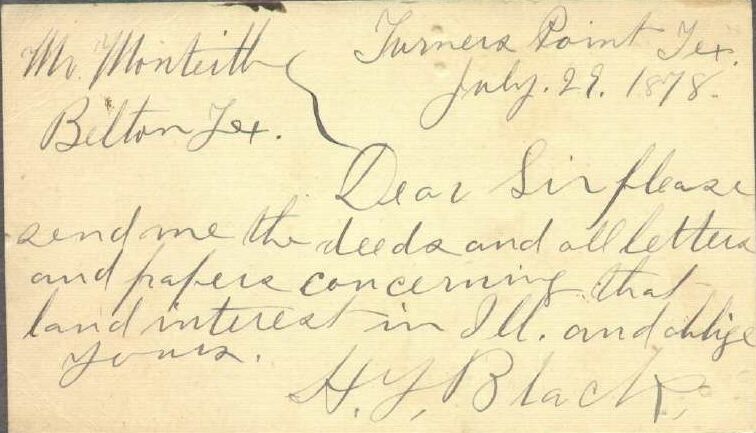 Turners Point Tex.
July. 29. 1878.
Mr. Monteith
Belton Tex.
Dear Sir please
send me the deeds and all letters
and papers concerning that
land interest in Ill. and oblige
yours.
H. Y. Black